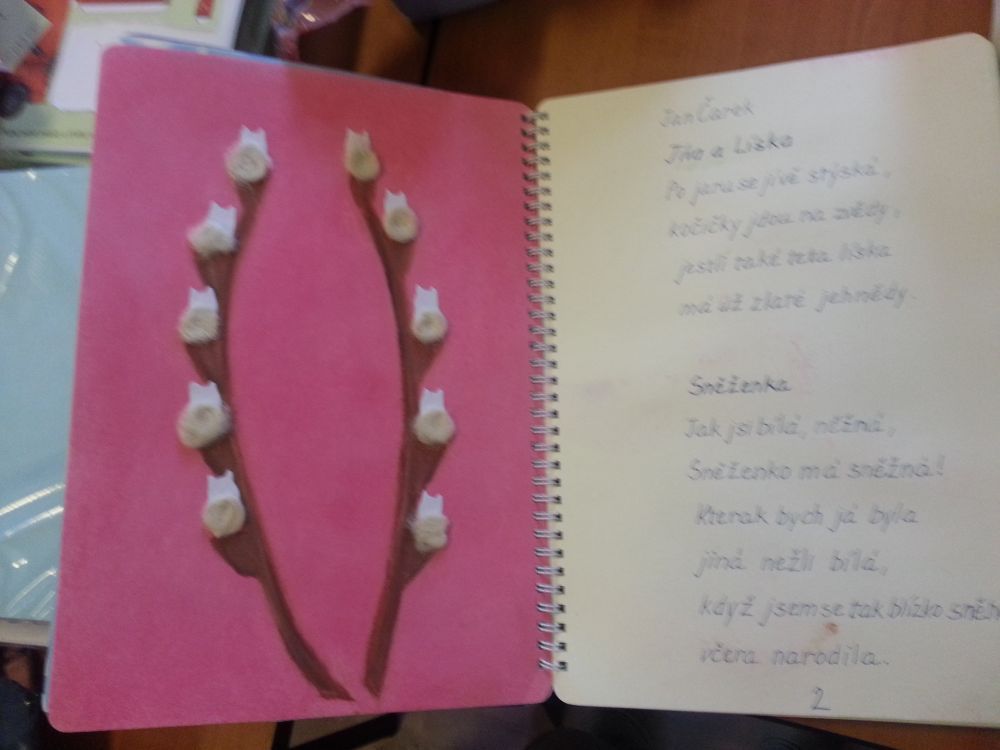 Jan Čarek
Jíva a Líska
Po jaru se jívě stýská,
kočičky jdou na zvědy,
jestli také teta líska
má už zlaté jehnědy.
Sněženka
Jak jsi bílá, něžná,
Sněženko má sněžná!
Kterak bych já byla
jiná nežli bílá,
když jsem se tak blízko sněhu
včera narodila.
2